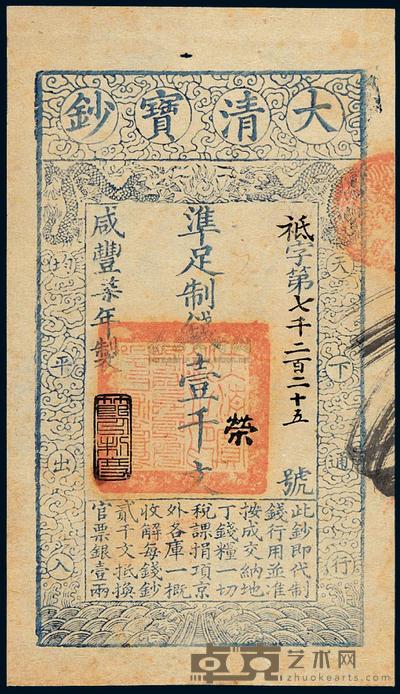 大清寶鈔
天下通行
均平出入
祗字第七千二百二十五號
準足制錢壹千文
榮
咸豐柒年製
此鈔即代制
錢行用並准
按成交納地
丁錢糧一切
稅課捐項京
外各庫一概
收解每錢鈔
貳千文抵換
官票銀壹兩
卓克艺术网
www.zhuokearts.com